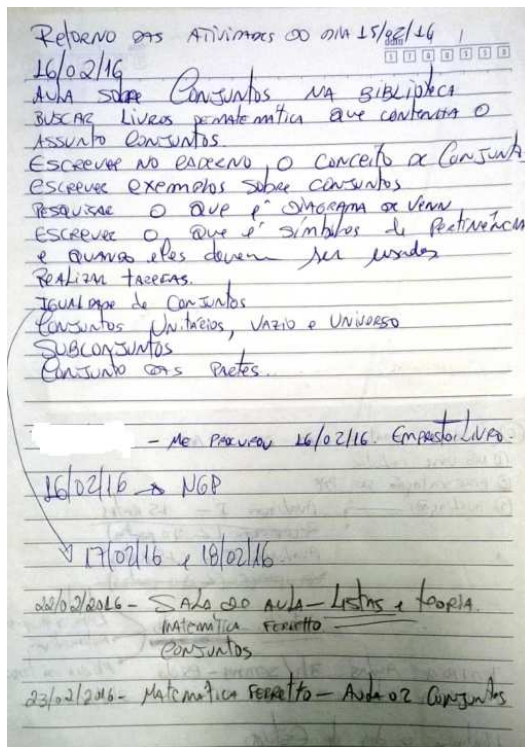 Retorno das atividades do dia 15/02/16
16/02/16
Aula sobre Conjuntos na biblioteca
Buscar livros de matemática que contenha o
assunto Conjuntos.
Escrever no caderno, o conceito de Conjunt
escrever exemplos sobre conjuntos
Pesquisar o que é diagrama de Venn
Escrever o que é símbolos de Pertinência
e quando eles devem ser usados
Realizar tarefas.
Igualdade de Conjuntos
Conjuntos Unitários, Vazio e Universo
Subconjuntos
Conjunto das Partes.
- Me procurou 16/02/16 Emprestei Livro.
16/02/16 → NGP
17/02/16 e 18/02/16
22/02/2016 - Sala de aula - Listas e teoria.
Matemática Ferretto
Conjuntos
23/02/2016 - Matemática Ferretto - Aula 02 Conjuntos